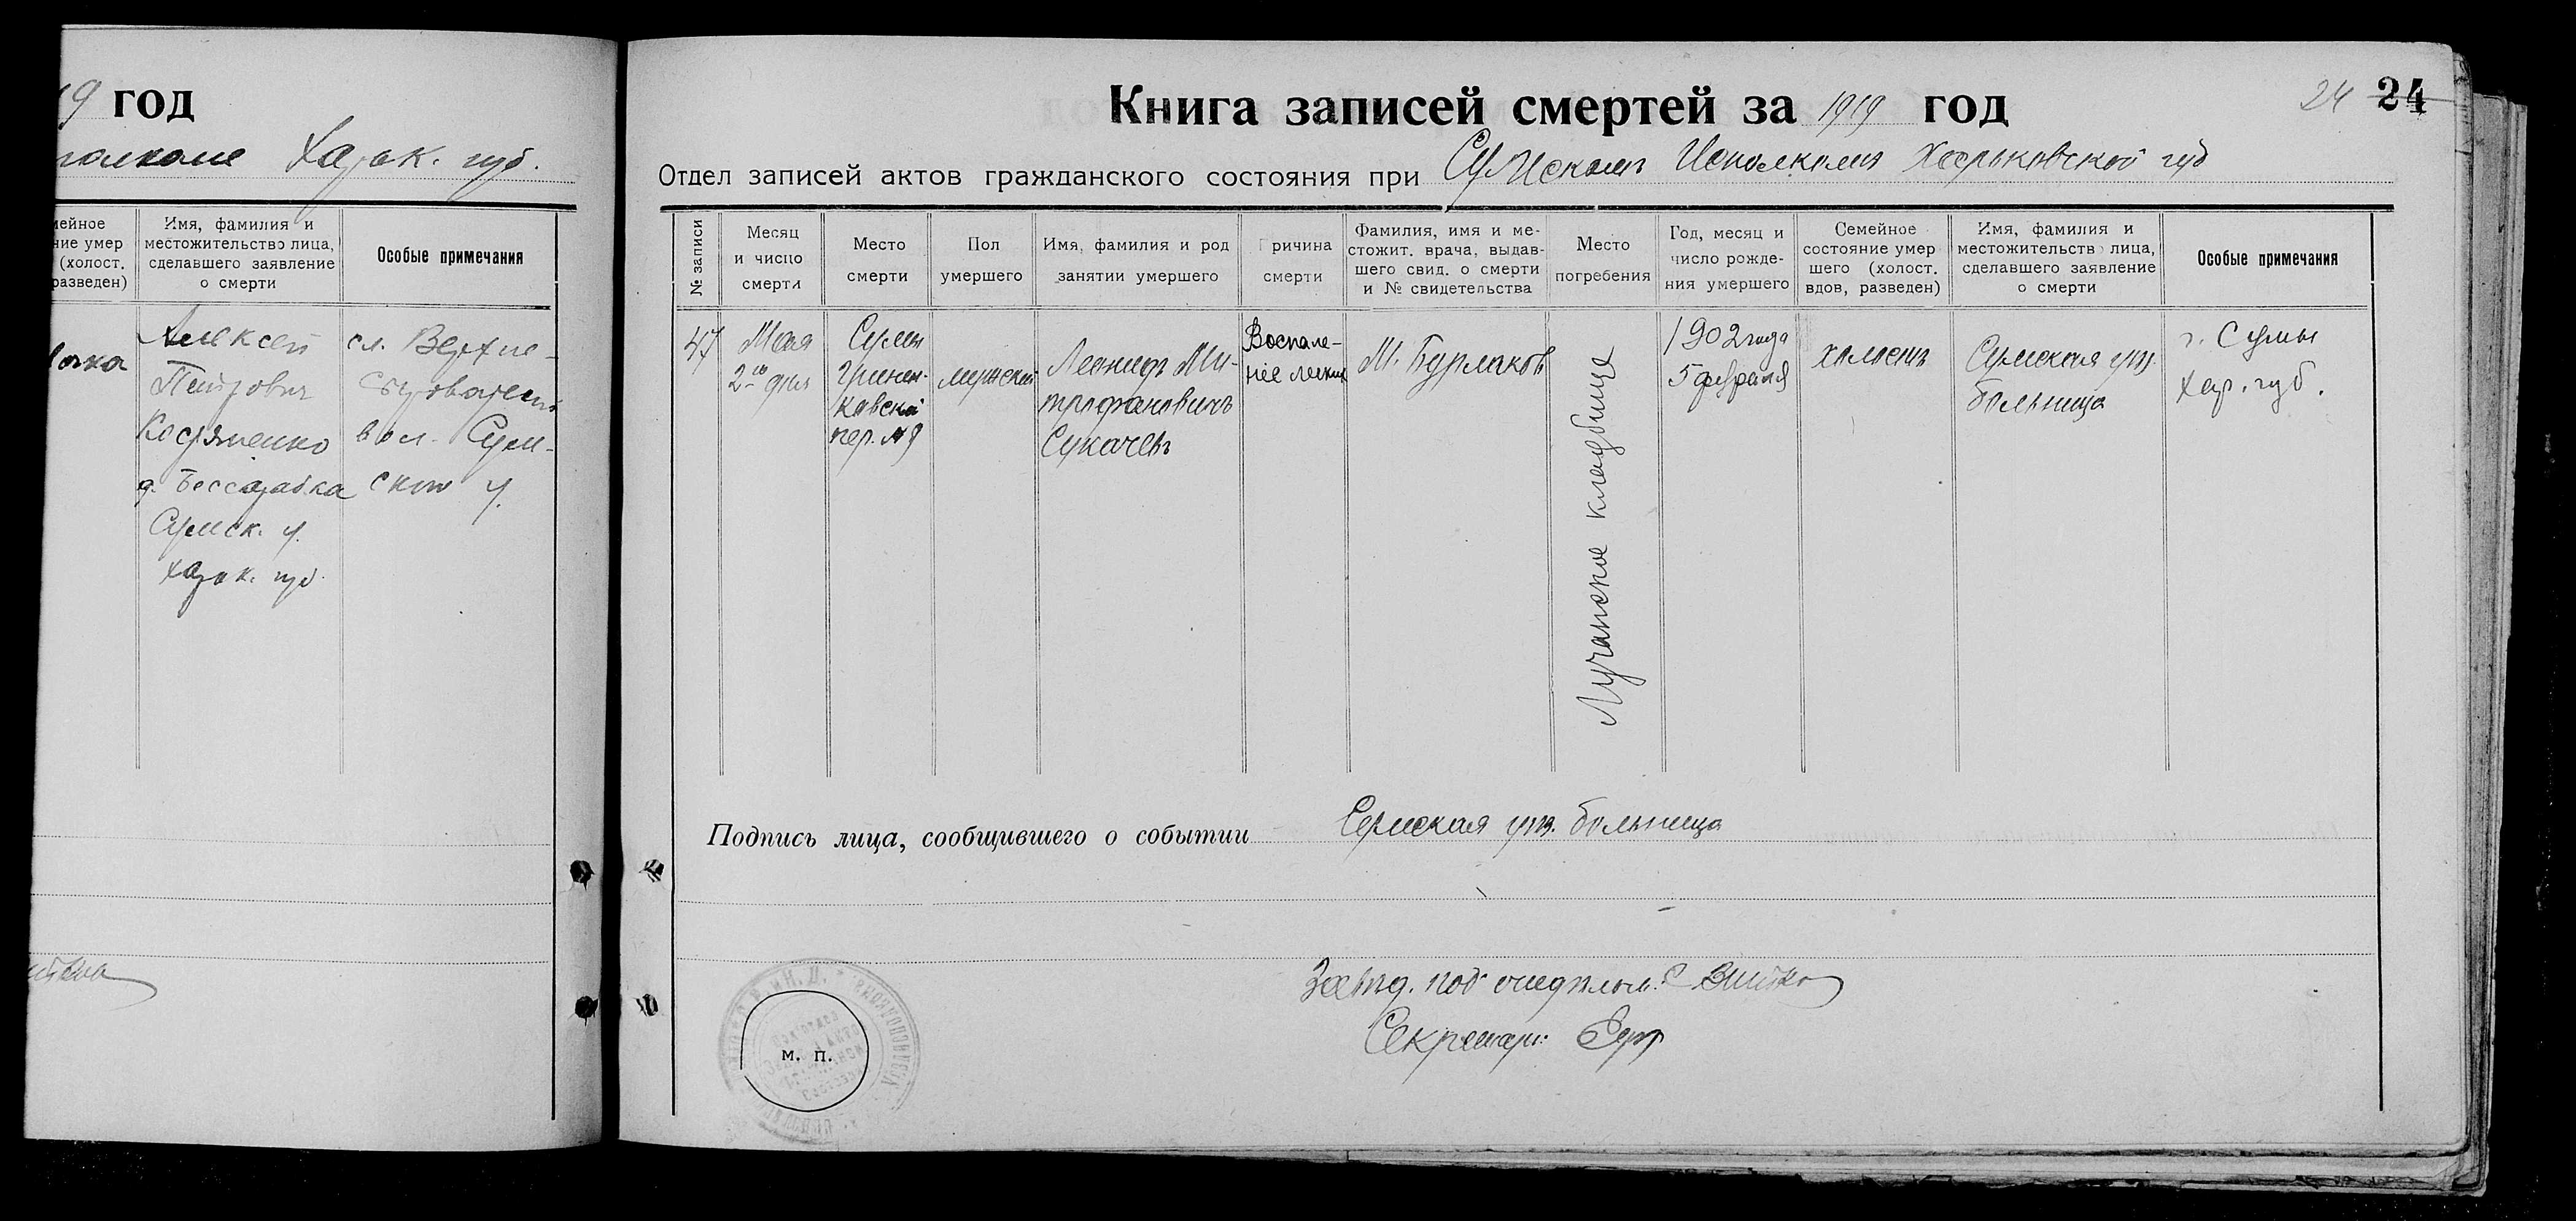 19 год
Харьк. губ.
Имя, фамилия и
местожительство лица,
сделавшего заявление
о смерти
Особые примечания
(холост.
разведен)
Алексей
Петрович
д. Бессарабка
Сумск. у.
Харьк. губ.
сл. Верхне-
вол. Сум-
ской у.
24 24
Книга записей смертей за 1919 год
Отдел записей актов гражданского состояния при Сумскомъ Исполкоме Харьковской губ
№ записи
Месяц
и число
смерти
Место
смерти
Пол
умершего
Имя, фамилия и род
занятии умершего
Причина
смерти
Фамилия, имя и ме-
стожит. врача, выдав-
шего свид. о смерти
и № свидетельства
Место
погребения
Год, месяц и
число рожде-
ния умершего
Семейное
состояние умер
шего (холост.
вдов, разведен)
Имя, фамилия и
местожительство лица,
сделавшего заявление
о смерти
Особые примечания
47
Мая
2-го дня
Сумы
пер. №9
мужской
Леонидъ Ми-
трофановичъ
Сукачевъ
Воспале-
ніе легких
М. Бурлаковъ
Лучанское кладбище
1902 года
5 февраля
холостъ
Сумская узд.
больница
г. Сумы
Хар. губ.
Подпись лица, сообщившего о событии Сумская узд. больница
Завѣд. под отдѣлом:
Секретарь:
м. п.